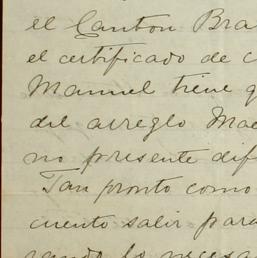 el Canton Bra
el certificado de c
Manuel tiene q
del arreglo Mac
no presente dif
Tan pronto como
cuento salir para
lo necesa